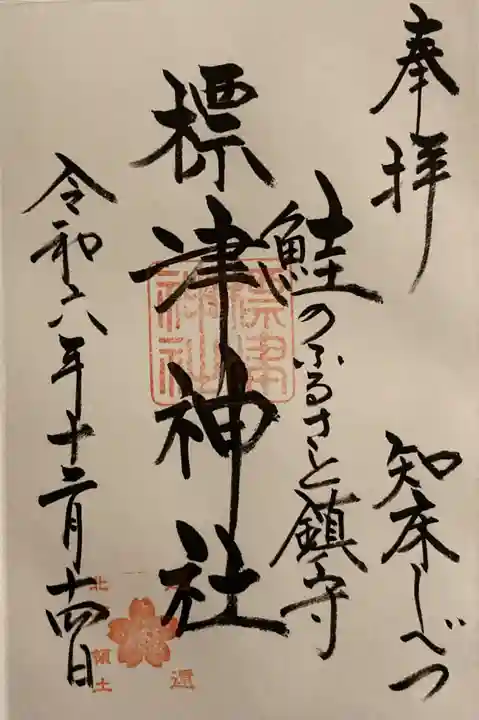 奉拝
知床しべつ
鮭のふるさと鎮守
標津神社
標津神社
令和六年十二月十四日
北
領土